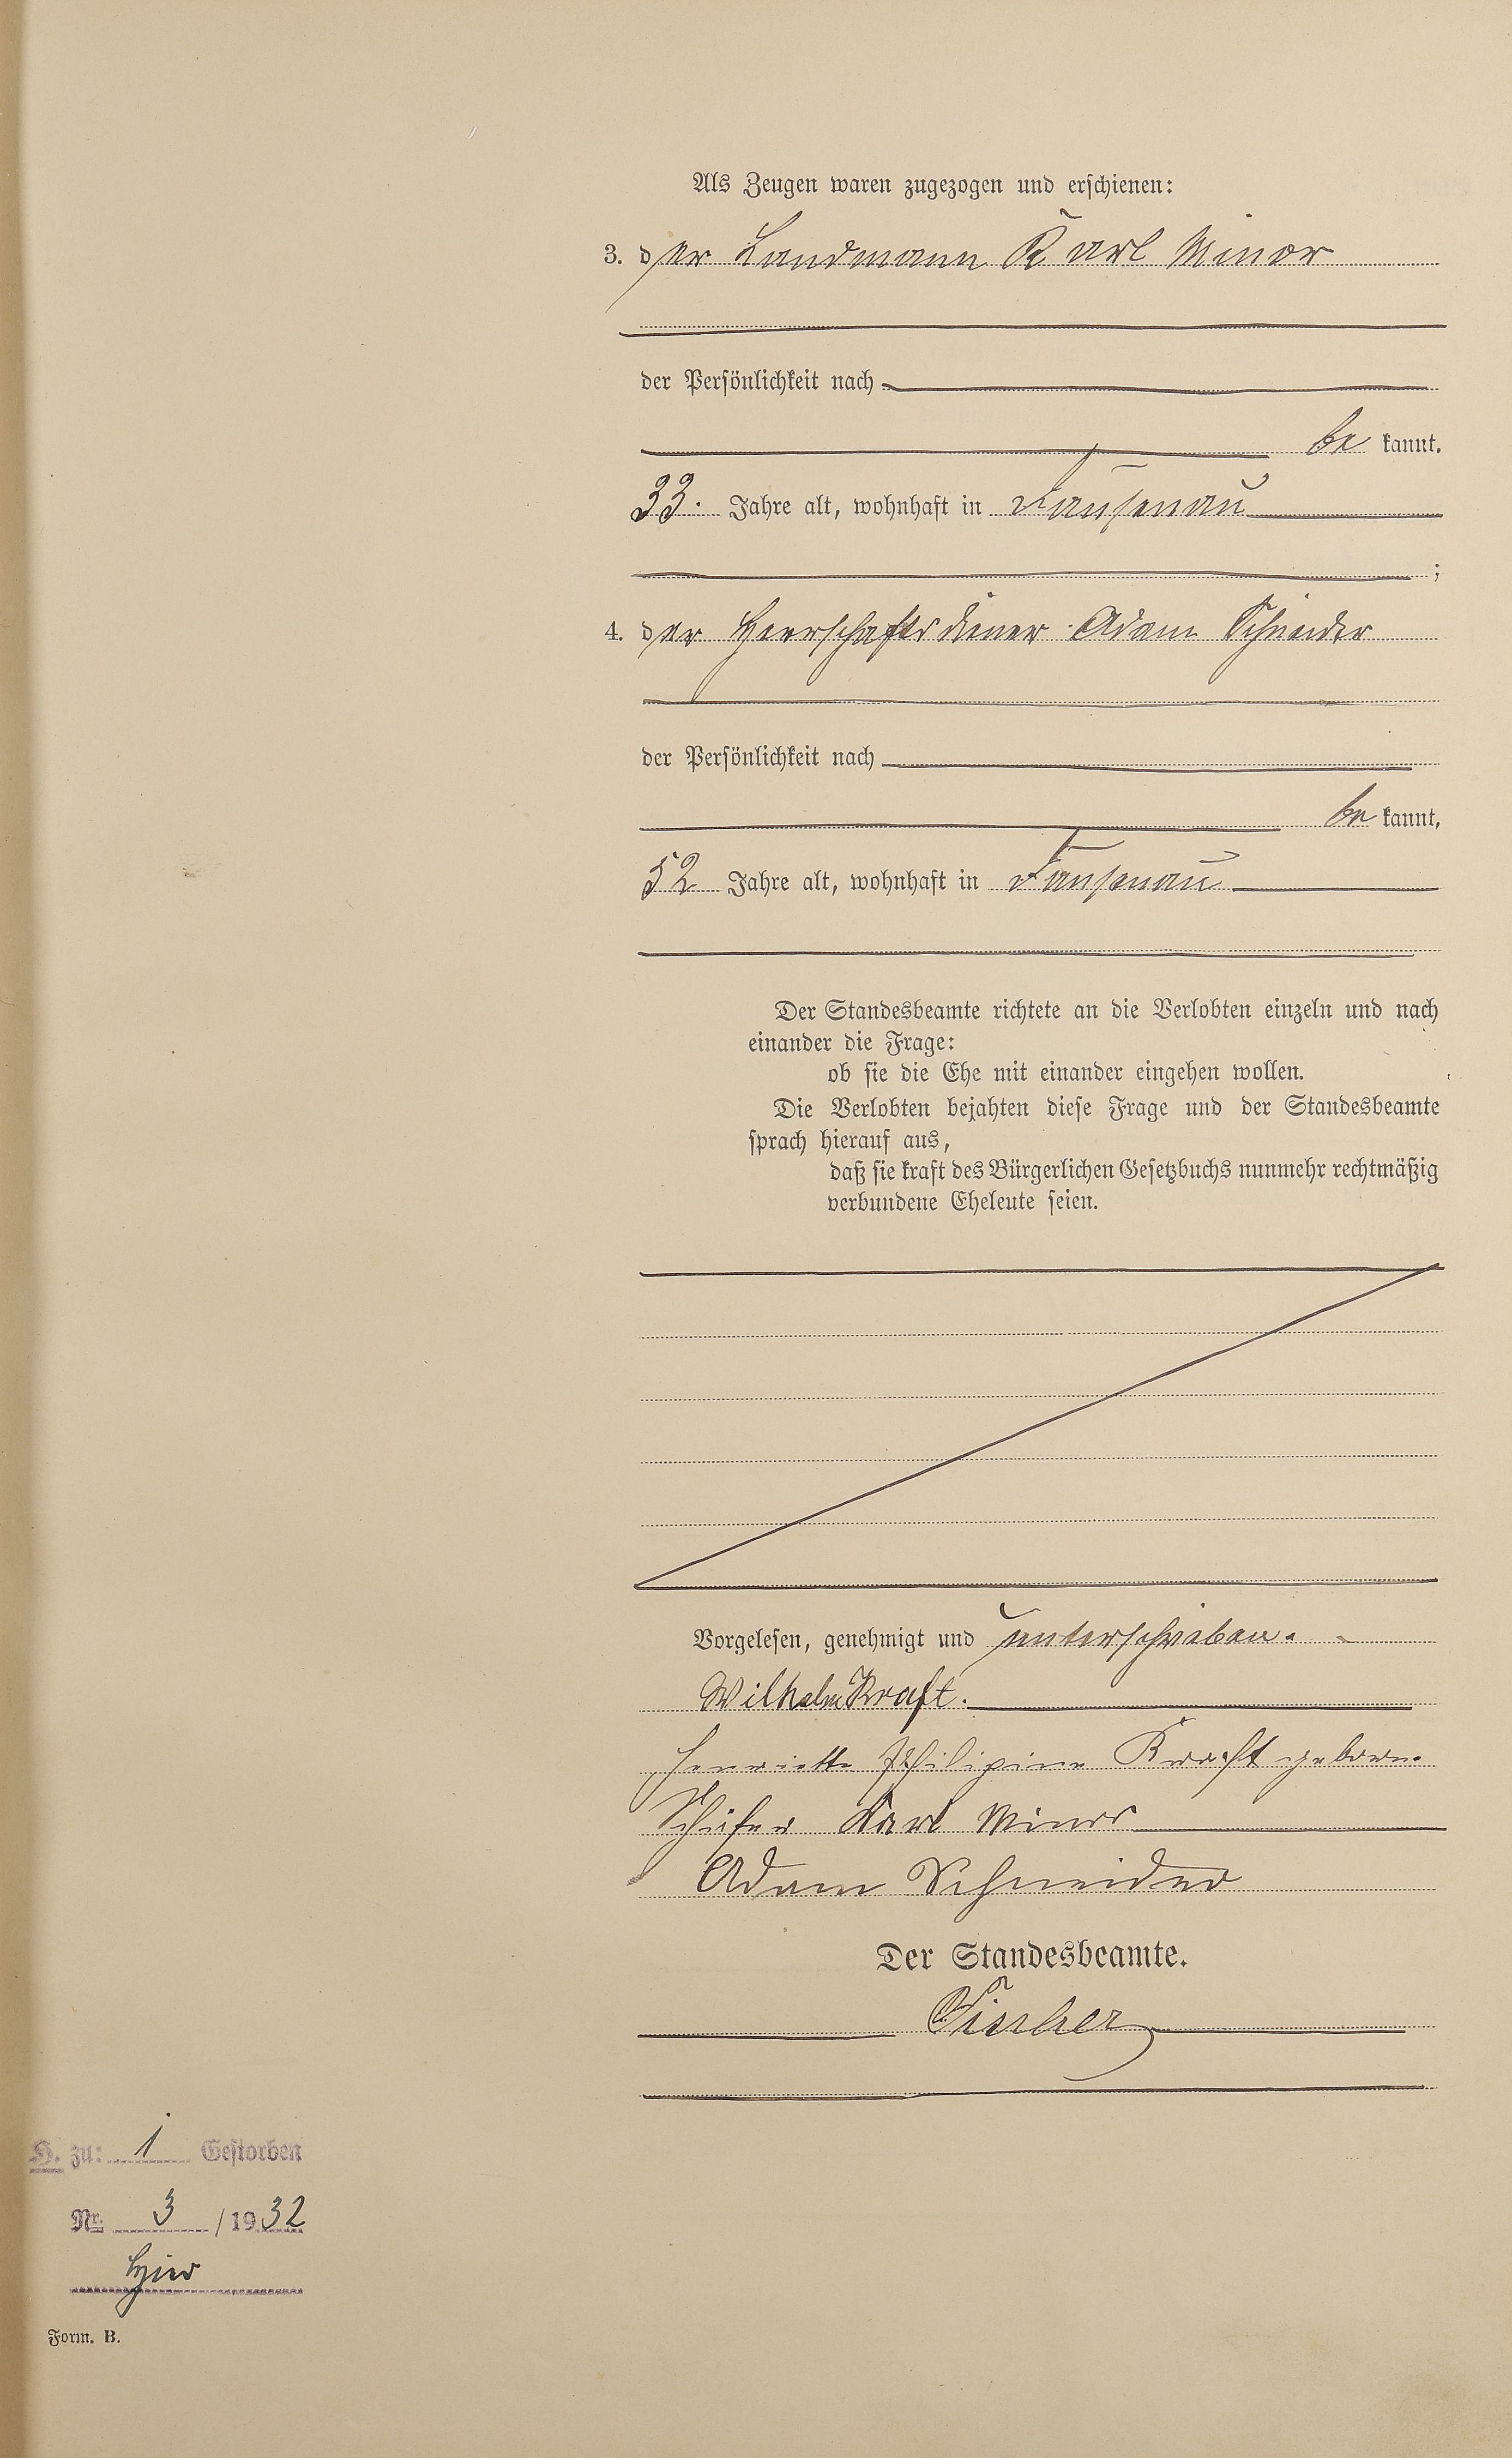 Als Zeugen waren zugezogen und erschienen:
3. der Landmann Karl Minor
der Persönlichkeit nach
be kannt.
33. Jahre alt, wohnhaft in Fausenau
;
4. der Herrschaftsdiener Adam Schneider
der Persönlichkeit nach
be kannt,
52 Jahre alt, wohnhaft in Fausenau
Der Standesbeamte richtete an die Verlobten einzeln und nach
einander die Frage:
ob sie die Ehe mit einander eingehen wollen.
Die Verlobten bejahten diese Frage und der Standesbeamte
sprach hierauf aus,
daß sie kraft des Bürgerlichen Gesetzbuchs nunmehr rechtmäßig
verbundene Eheleute seien.
Vorgelesen, genehmigt und unterschrieben.
Wilhelm Kraft.
Henriette Philipine Kraft geborne
Schäfer Karl Minor
Adam Schneider
Der Standesbeamte.
Fischer
H. zu: 1 Gestorben
Nr. 3 /1932
hier
Form. B.